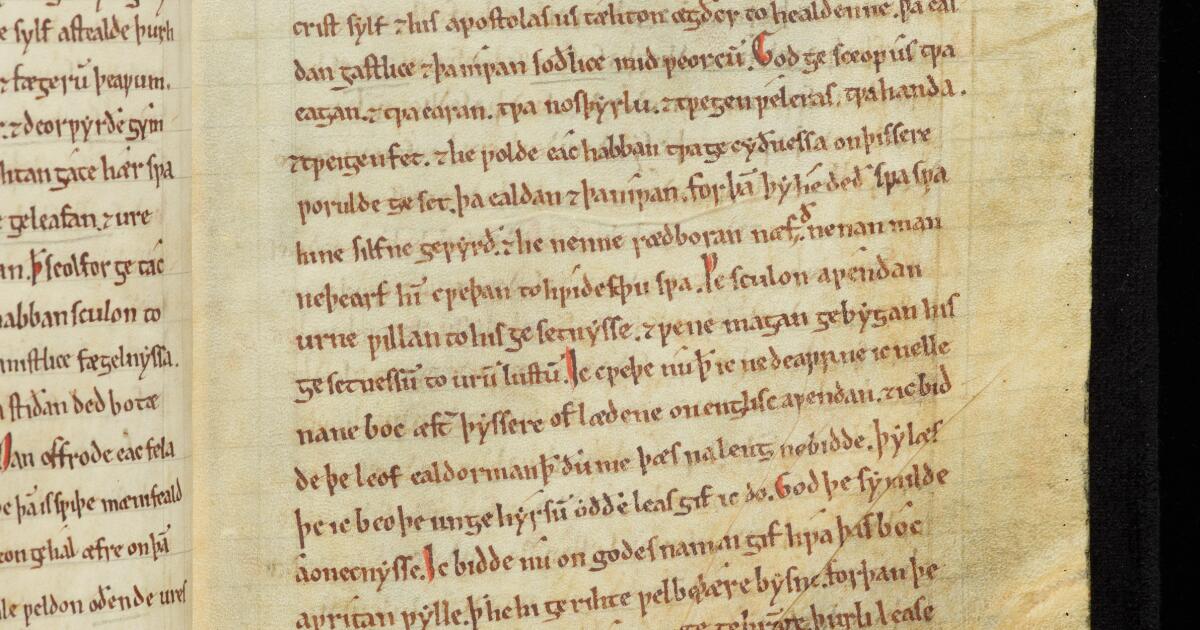 e sylf astealde þurh
⁊ fægerū þeaƿum.
⁊ deorƿyrðe gym
htan gate hær sƿa
geleafan. ⁊ ure
an. ꝥ sceolfor ge tac
habban sculon to
fægelnyssa.
stiðan ded botæ
Man offrode eac fela
e þā is sƿiþe mænifeald
gehal æfre on þā
le ƿeldon oðende ures
crist sylf ⁊ his apostolas us tæhton ægðer to healdenne. þa eal
dan gastlice ⁊ þa niƿan soðlice mid ƿeorcū. God ge sceop us tƿa
eagan. ⁊ tƿa earan. tƿa nosþyrlu. ⁊ tƿegen ƿeleras. tƿa handa.
⁊ tƿeigen fet. ⁊ he ƿolde eac habban tƿa gecyðnessa on þissere
ƿorulde ge set. þa ealdan ⁊ þa niƿan. for þā þy he ded sƿa sƿa
hine silfne geƿyrð. ⁊ he nenne rædboran næfð. ne nan man
ne þearf hī cƿeþan to hƿi dest þu sƿa. Ƿe sculon aƿendan
urne ƿillan to his ge setnysse. ⁊ ƿe ne magan gebygan his
ge setnessū to urū lustū. Ic cƿeþe nu ꝥ ic ne dearr ne ic nelle
nane boc æft̄ þyssere of lædene on englisc aƿendan. ⁊ ic bid
de þe leof ealdorman ꝥ ðu me þæs na leng ne bidde. þy læs
þe ic beo þe unge hyrsū oððe leas gif ic do. God þe sy milde
a on ecnysse. Ic bidde nu on godes naman gif hƿa þas boc
aƿritan ƿylle. ꝥ he hi ge rihte ƿel be þære bysne. for þan þe
þurh lease